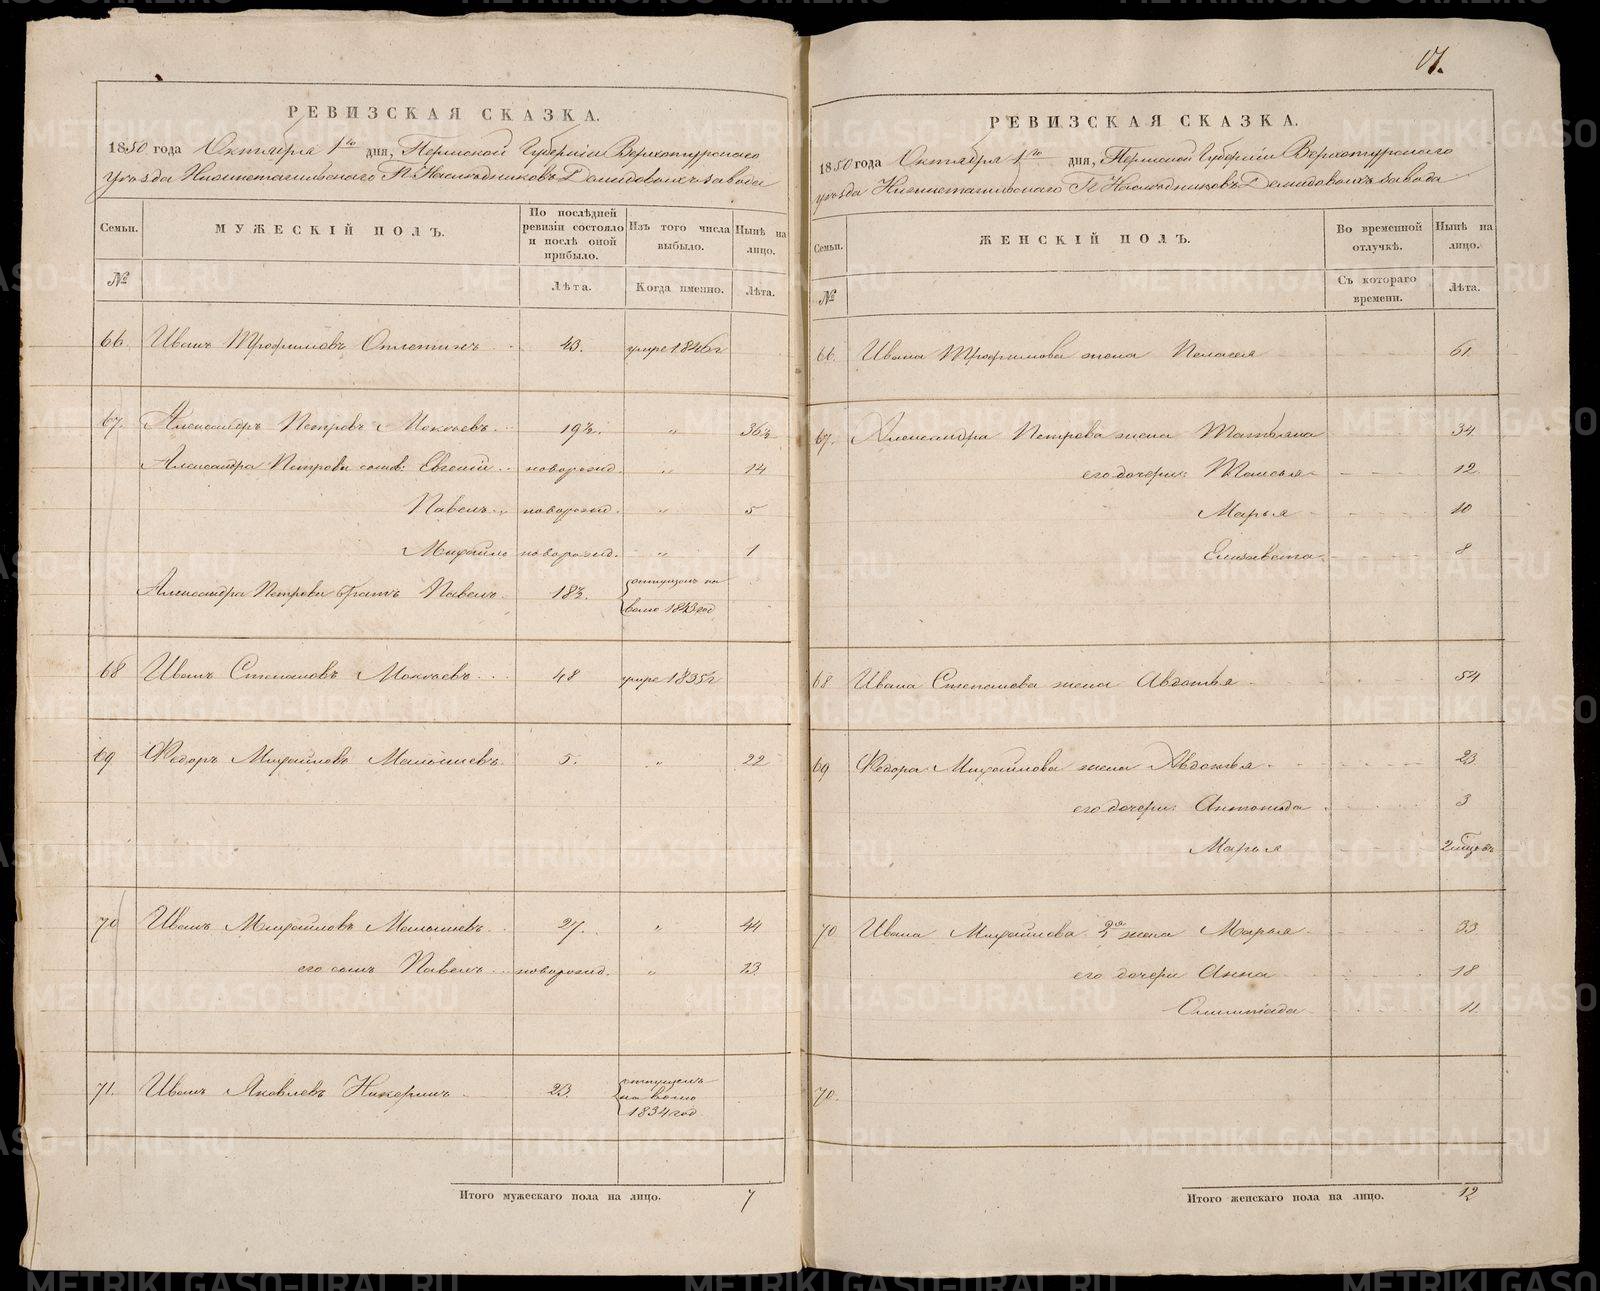 РЕВИЗСКАЯ СКАЗКА.
1850 года Октября 1го дня, Пермской Губерніи Верхотурскаго
уѣзда Нижнетагильскаго Гг. Наслѣдниковъ Демидовыхъ завода
Семьи. МУЖЕСКІЙ ПОЛЪ. По послѣдней ревизіи состояло и послѣ оной прибыло. Изъ того числа выбыло. Нынѣ на лицо.
№ Лѣта. Когда именно. Лѣта.
66 Иванъ Трофимовъ 43. умре 1846 г
67. Александръ Петровъ 19½. " 36½
Александра Петрова сынов: Евгеній новорожд. " 14
Павелъ новорожд. " 5
Михайло новорожд. " 1
Александра Петрова братъ Павелъ 18½. отпущен на
волю 1843 год
68 Иванъ Степановъ 48 умре 1835 г
69 Федоръ Михайловъ Малышевъ 5. " 22
70 Иванъ Михайловъ Малышевъ 27. " 44
его сынъ Павелъ новорожд. " 23
71. Иванъ Яковлевъ 23. отпущенъ
на волю
1834 год
Итого мужескаго пола на лицо. 7
РЕВИЗСКАЯ СКАЗКА.
1850 года Октября 1го дня, Пермской Губерніи Верхотурскаго
уѣзда Нижнетагильскаго Гг Наслѣдниковъ Демидовыхъ завода
Семьи. ЖЕНСКІЙ ПОЛЪ. Во временной отлучкѣ. Нынѣ на лицо.
№ Съ котораго времени. Лѣта.
66. Ивана Трофимова жена Пелагея 61.
67. Александра Петрова жена Татьяна 34.
его дочери: Таисья 12.
Марья 10
Елизавета 8
68 Ивана Степанова жена Авдотья 54
69 Федора Михайлова жена Авдотья 23
его дочери: Антонида 3
Марья 2 мѣсецов
70 Ивана Михайлова 2я жена Марья 33
его дочери Анна 18
Олимпіада 11.
70.
Итого женскаго пола на лицо. 12
METRIKI.GASO-URAL.RU